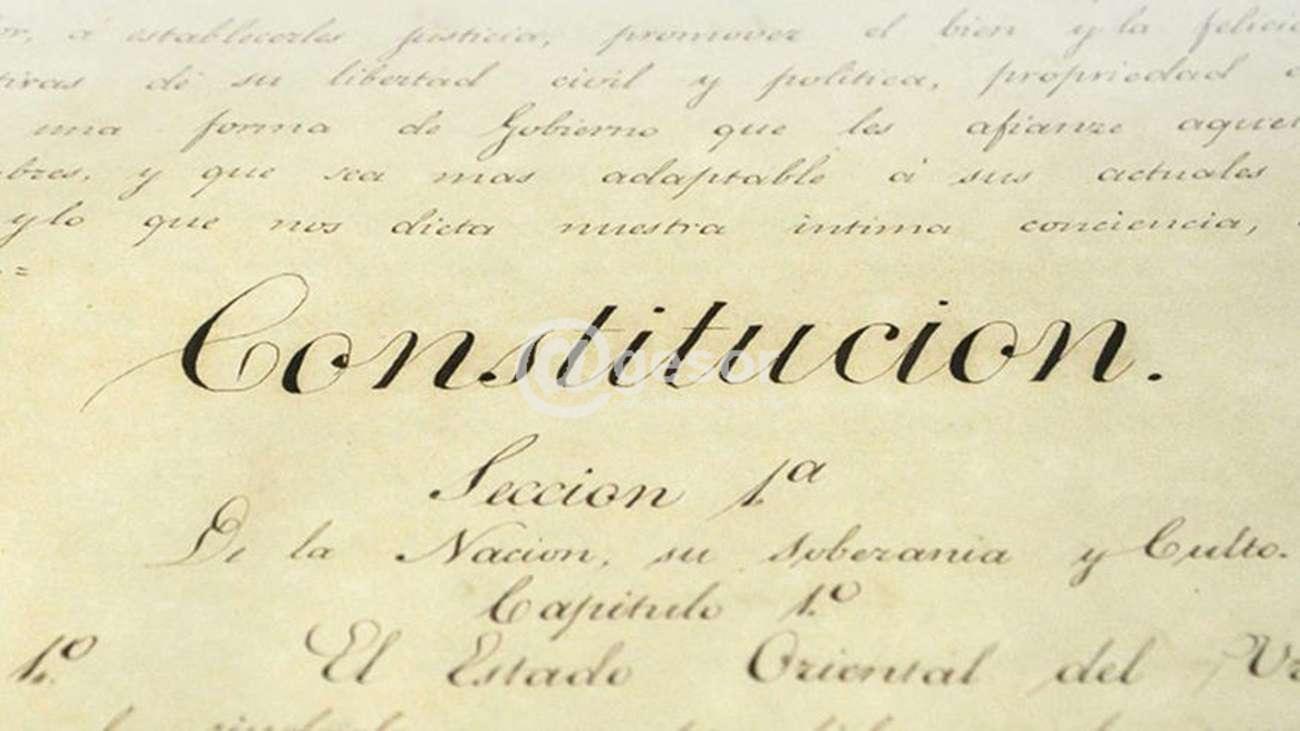 á establecerles justicia, promover el bien y la
de su libertad civil y politica, propriedad
una forma de Gobierno que les afianze
y que sea mas adaptable á sus actuales
y lo que nos dicta nuestra intima conciencia,
Constitucion.
@gesor
Seccion 1.ª
De la Nacion, su soberania y Culto.
Capitulo 1.º
1.º El Estado Oriental del